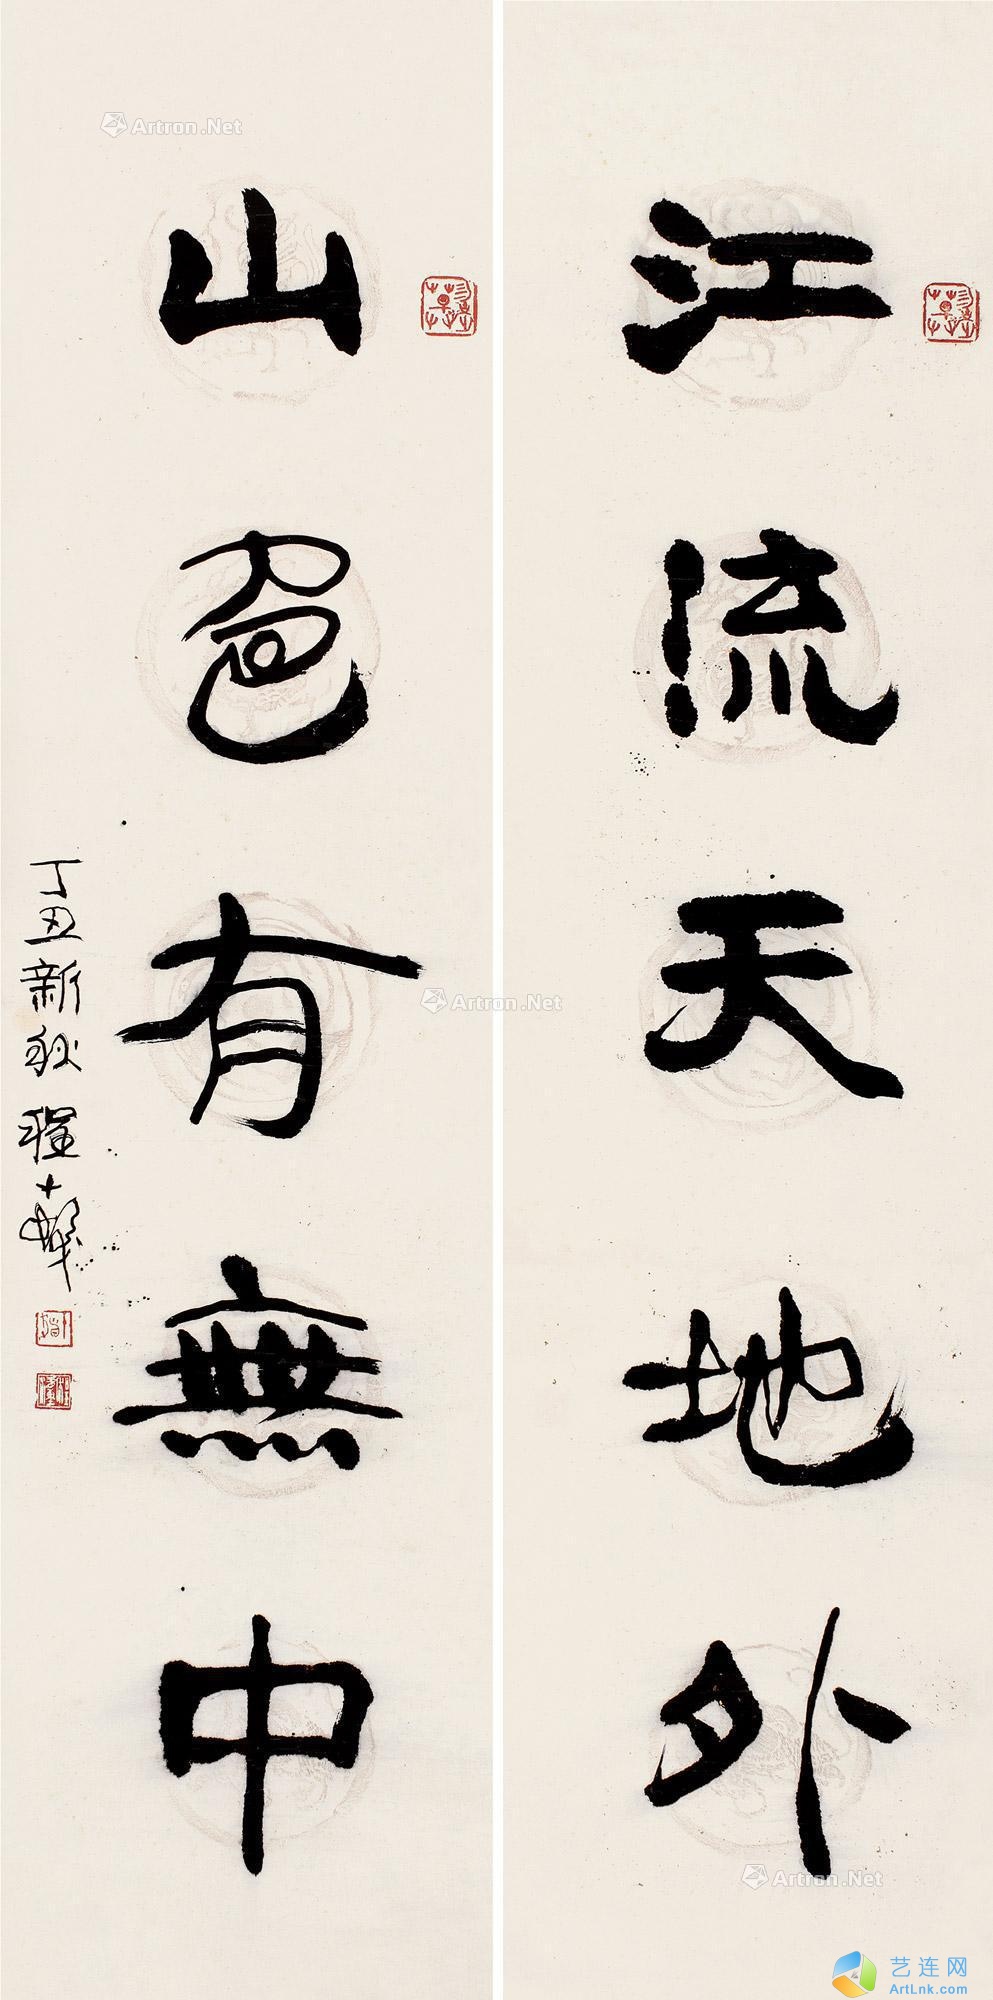 江流天地外
山色有無中
丁丑新秋 程十髮
Artron.Net
Artron.Net
Artron.Net
艺连网
ArtLnk.com